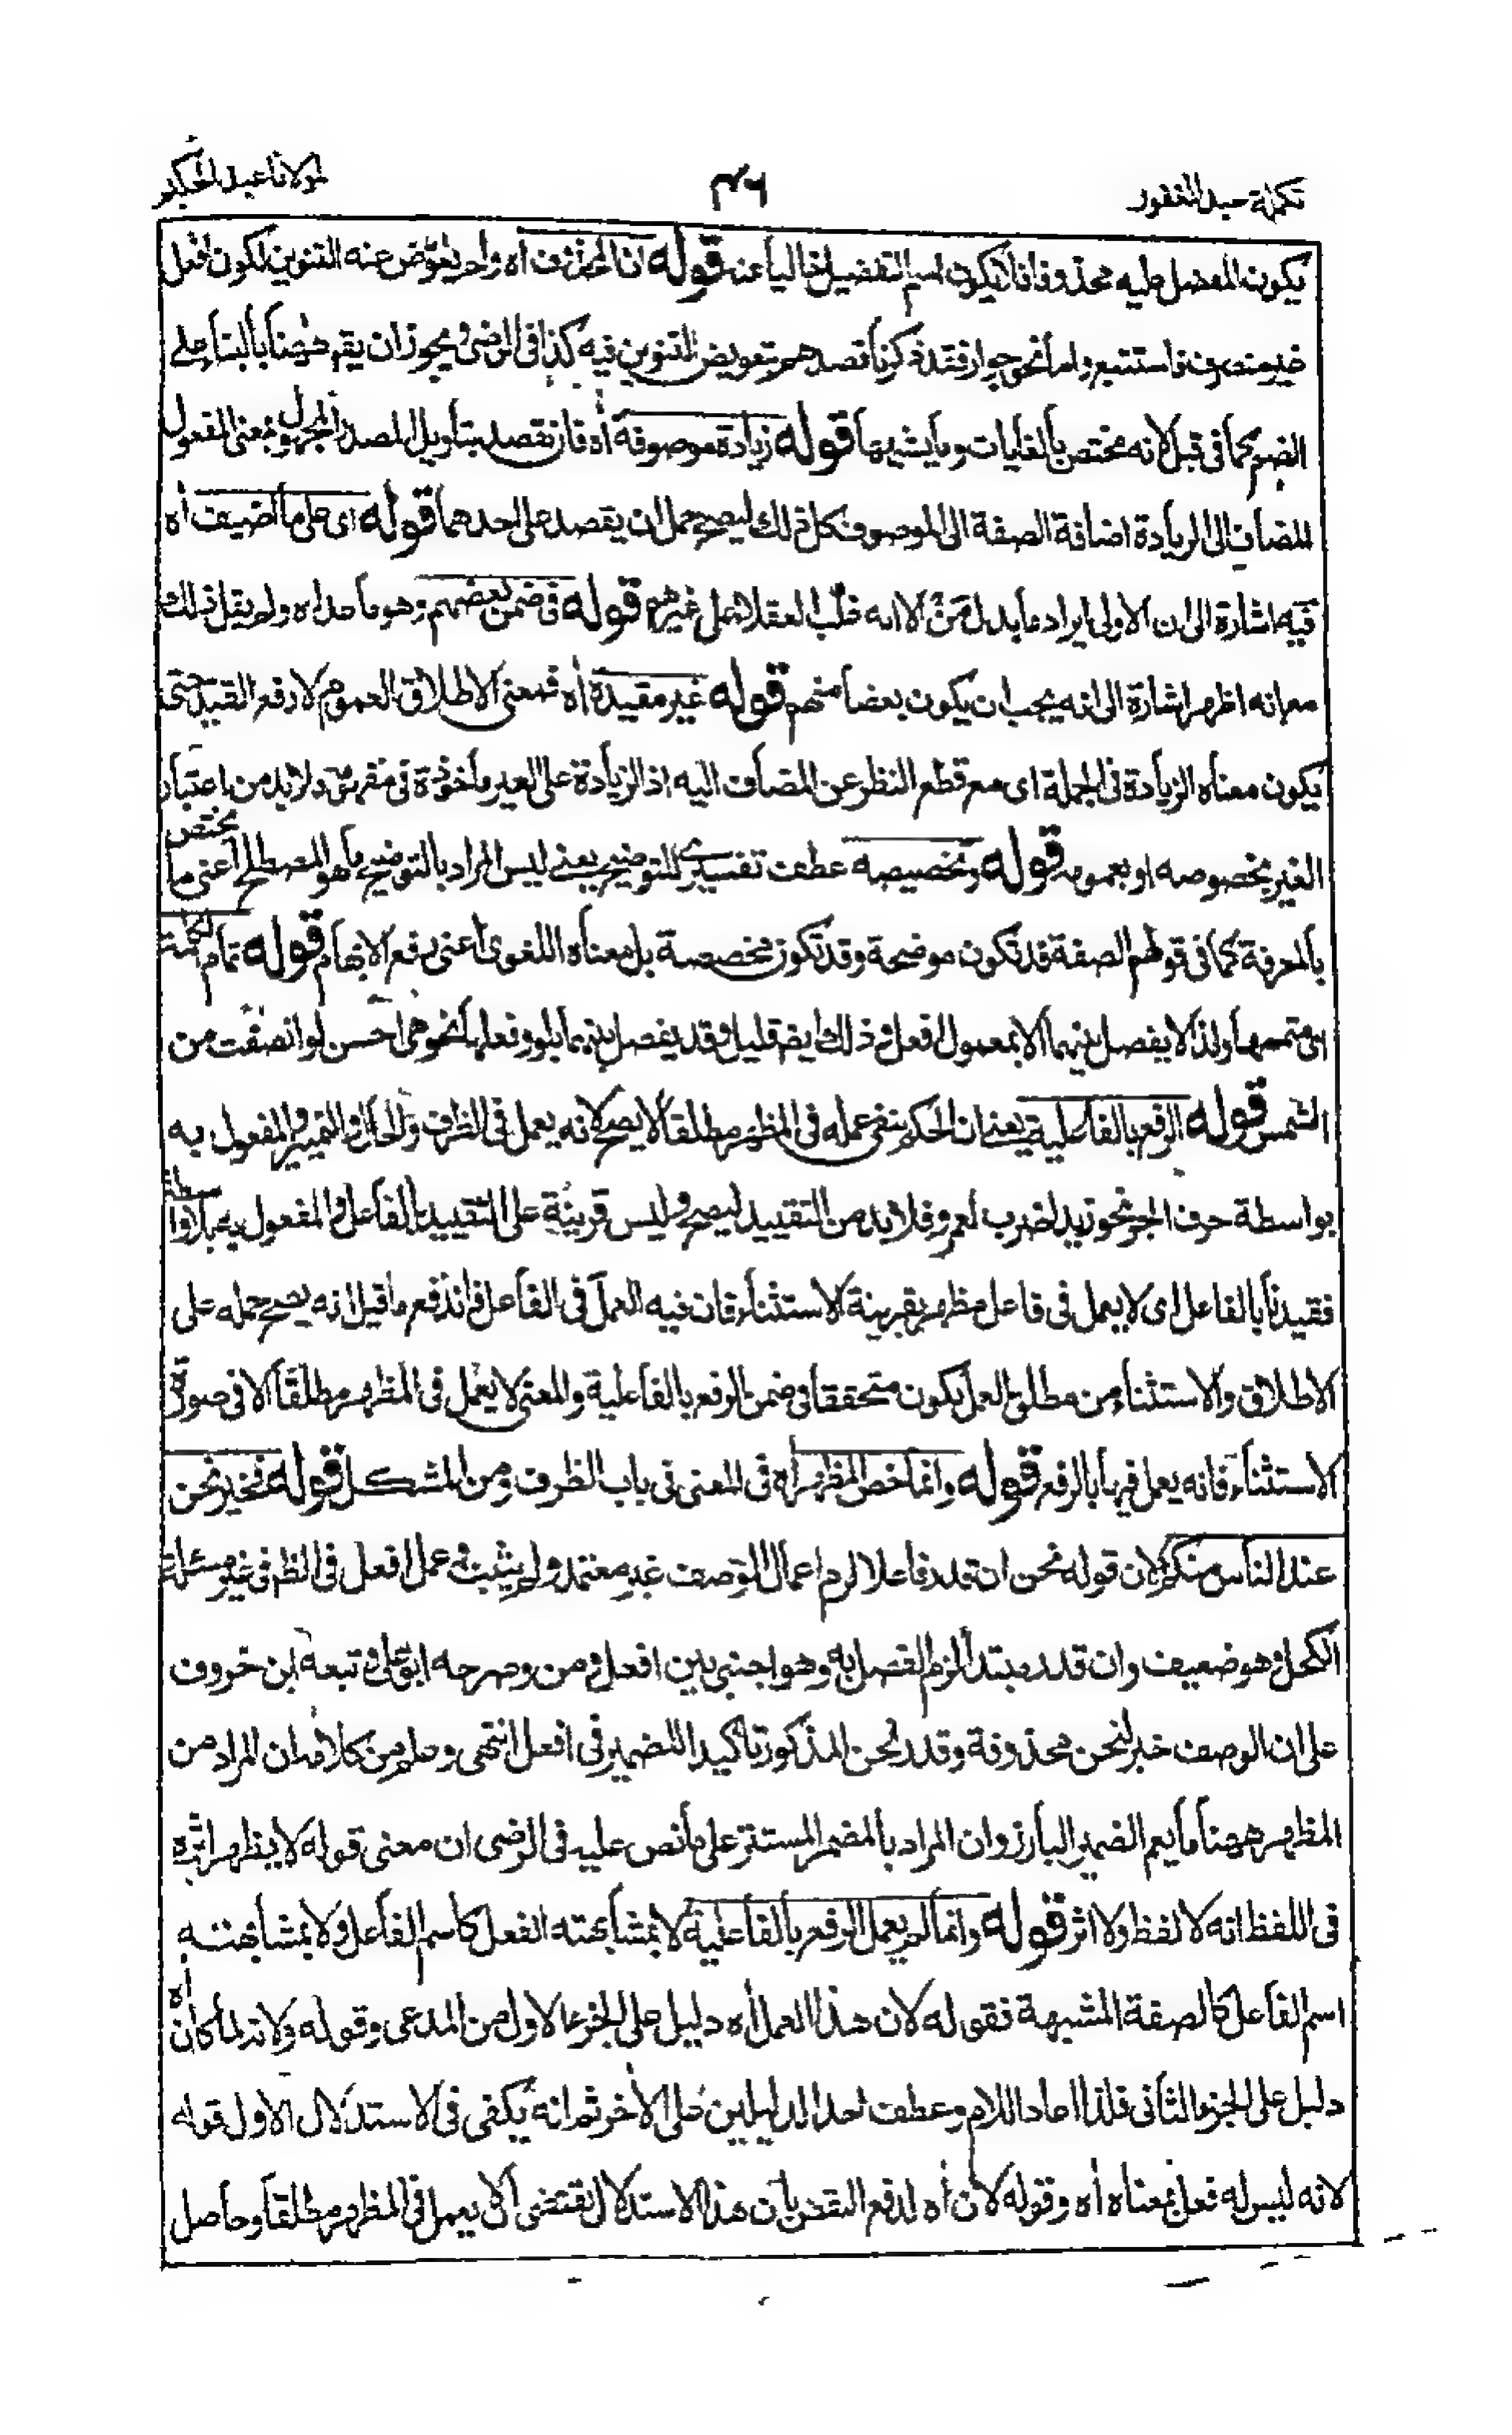 تكملة عبد الغفور
٣٤٦
لمولانا عبد الحكيم
يكون المفضل عليه محذوفا فلا يكون اسم التفضيل خاليا عنه قوله ان المحذوف اه واحر يعوض عنه التنوين لكون افعل
غير منصرف فاستتبع واما نحو جوار فقد ذكرنا قصدهم تعويض التنوين فيه كذا في الرضى ويجوز ان يقم ههنا بالبناء على
الضم كما في قبل لانه مختص بالغايات وما يشبهها قوله زيادة موصوفة اه فان قصد بتأويل المصدر المجهول بمعنى المفعول
المضاف الى الزيادة اضافة الصفة الى الموصوف كل ذلك ليصح حمل ان يقصد على احدهما قوله اى على ما اضيف اه
فيه اشارة الى ان الاولى ايراد ما بدل من الا انه غلب العقلاء على غيرهم قوله في ضمن بعضهم وهو ما عداه ولم يقل ذلك
مع انه اظهر اشارة الى انه يجب ان يكون بعضا منهم قوله غير مقيدة اه فمعنى الاطلاق العموم لا رفع القيد حتى
يكون معناه الزيادة في الجملة اى مع قطع النظر عن المضاف اليه اذ الزيادة على الغير ماخوذة في مفهومه ولابد من اعتبار
الغير بخصوصه او بعمومه قوله وتخصيصه عطف تفسيرى للتوضيح يعنى ليس المراد بالتوضيح ما هو المصطلح اعنى ما يختص
بالمعرفة كما في قولهم الصفة قد تكون موضحة وقد تكون مخصصة بل معناه اللغوى اعنى رفع الابهام قوله تمام الكلمة
اى متممها ولذا لا يفصل بينهما الا بمعمول افعل وذلك ايضم قليل وقد يفصل بينهما بلو وفعلها نحو هى احسن لو انصفت من
الشمس قوله الرفع بالفاعلية يعنى ان الحكم بنفى عمله في المظهر مطلقا لا يصح لانه يعمل في الظرف والحال والتمييز والمفعول به
بواسطة حرف الجر نحو زيد اضرب لعمرو فلا بد من التقييد ليصح وليس قرينة على التقييد بالفاعل والمفعول به بلا واسطة
فقيدنا بالفاعل اى لا يعمل في فاعل مظهر بقرينة الاستثناء فان فيه العمل في الفاعل فاندفع ما قيل انه يصح حمله على
الاطلاق والاستثناء من مطلق العمل يكون متحققا في ضمن الرفع بالفاعلية والمعنى لا يعمل في المظهر مطلقا الا في صورة
الاستثناء فانه يعمل فيها بالرفع قوله وانما خص المظهر اه في المغنى في باب الظرف ومن المشكل قوله فخير نحن
عند الناس منكم لان قوله نحن ان قدر فاعلا لزم اعمال الوصف غير معتمد ولم يثبت عمل افعل في الظم في غير مسئلة
الكحل وهو ضعيف وان قدر مبتدأ لزم الفصل به وهو اجنبى بين افعل ومن وصرحه ابو على وتبعه ابن خروف
على ان الوصف خبر لنحن محذوفة وقدر نحن المذكور تأكيدا للضمير في افعل انتهى وعلم من كلامه ان المراد من
المظهر ههنا ما يعم الضمير البارز وان المراد بالمضمر المستتر على ما نص عليه في الرضى ان معنى قوله لا يظهر اثره
في اللفظ انه لا لفظ ولا اثر قوله وانما لم يعمل الرفع بالفاعلية لا بمشابهته الفعل كاسم الفاعل ولا بمشابهته
اسم الفاعل كالصفة المشبهة فقوله لان هذا العمل اه دليل على الجزء الاول من المدعى وقوله ولانه لما كان اه
دليل على الجزء الثانى فلذا اعاد اللام وعطف احد الدليلين على الآخر ثم انه يكفى في الاستدلال الاول قوله
لانه ليس له فعل بمعناه اه وقوله لان اه لدفع النقض بان هذا الاستدلال يقتضى ان لا يعمل في المظهر مطلقا وحاصل